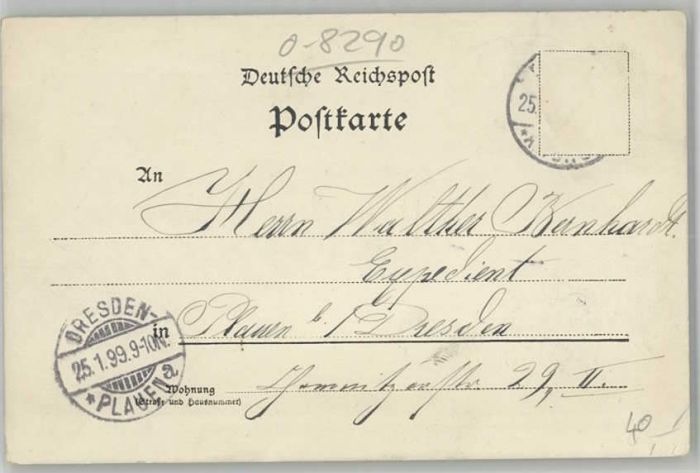 0-8290
Deutsche Reichspost
Postkarte
25.
An Herrn Walther Bernhardt.
Expedient
in Plauen b/Dresden
DRESDEN-
25.1.99.9-10N.
* PLAUEN a
Wohnung Chemnitzerstr. 29, II.
(Straße und Hausnummer)
40